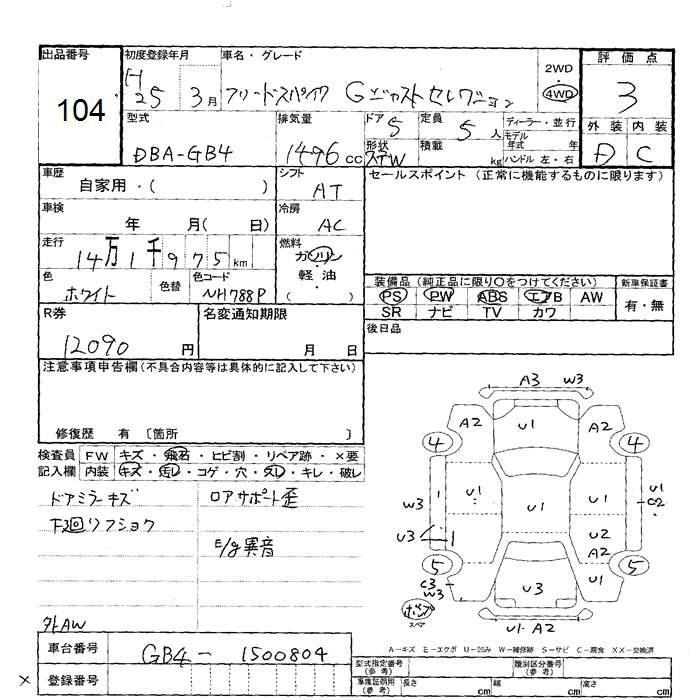 出品番号 初度登録年月 車名・グレード
104
H 25 3月 フリードスパイク Gジャストセレクション
2WD
4WD
評価点
3
外装 内装
D C
型式 排気量 ドア 5 定員 5人 ディーラー・並行
DBA-GB4 1496cc
形状 積載 kg
モデル年式 年
ハンドル 左・右
車歴 自家用・( )
シフト AT
セールスポイント (正常に機能するものに限ります)
車検 年 月( 日)
冷房 AC
走行 14万1千975km
燃料 ガソリン・軽油 ( )
色 ホワイト 色替 色コード NH788P
装備品 (純正品に限り○をつけてください) 新車保証書
PS PW ABS エアB AW 有・無
SR ナビ TV カワ
R券 12090円
名変通知期限 月 日
後日品
注意事項申告欄(不具合内容等は具体的に記入して下さい)
修復歴 有 〔箇所 〕
検査員記入欄
FW キズ・飛石・ヒビ割・リペア跡・×要
内装 キズ・汚レ・コゲ・穴・スレ・キレ・破レ
ドアミラーキズ ロアサポート歪
下廻リフショク
E/g異音
外AW
A3 W3
A2 U1 A2
4 4
W3 U1 1 U1 U1 C2
U3 1 U2
A2
5 5
C3 W3 U3 U1
スペア
U1-A2
A-キズ E-エクボ U-凹み W-補修跡 S-サビ C-腐食 XX-交換済
車台番号 GB4-1500804
登録番号
×
型式指定番号(参考) 類別区分番号(参考)
車庫証明用(参考) 長さ cm 幅 cm 高さ cm